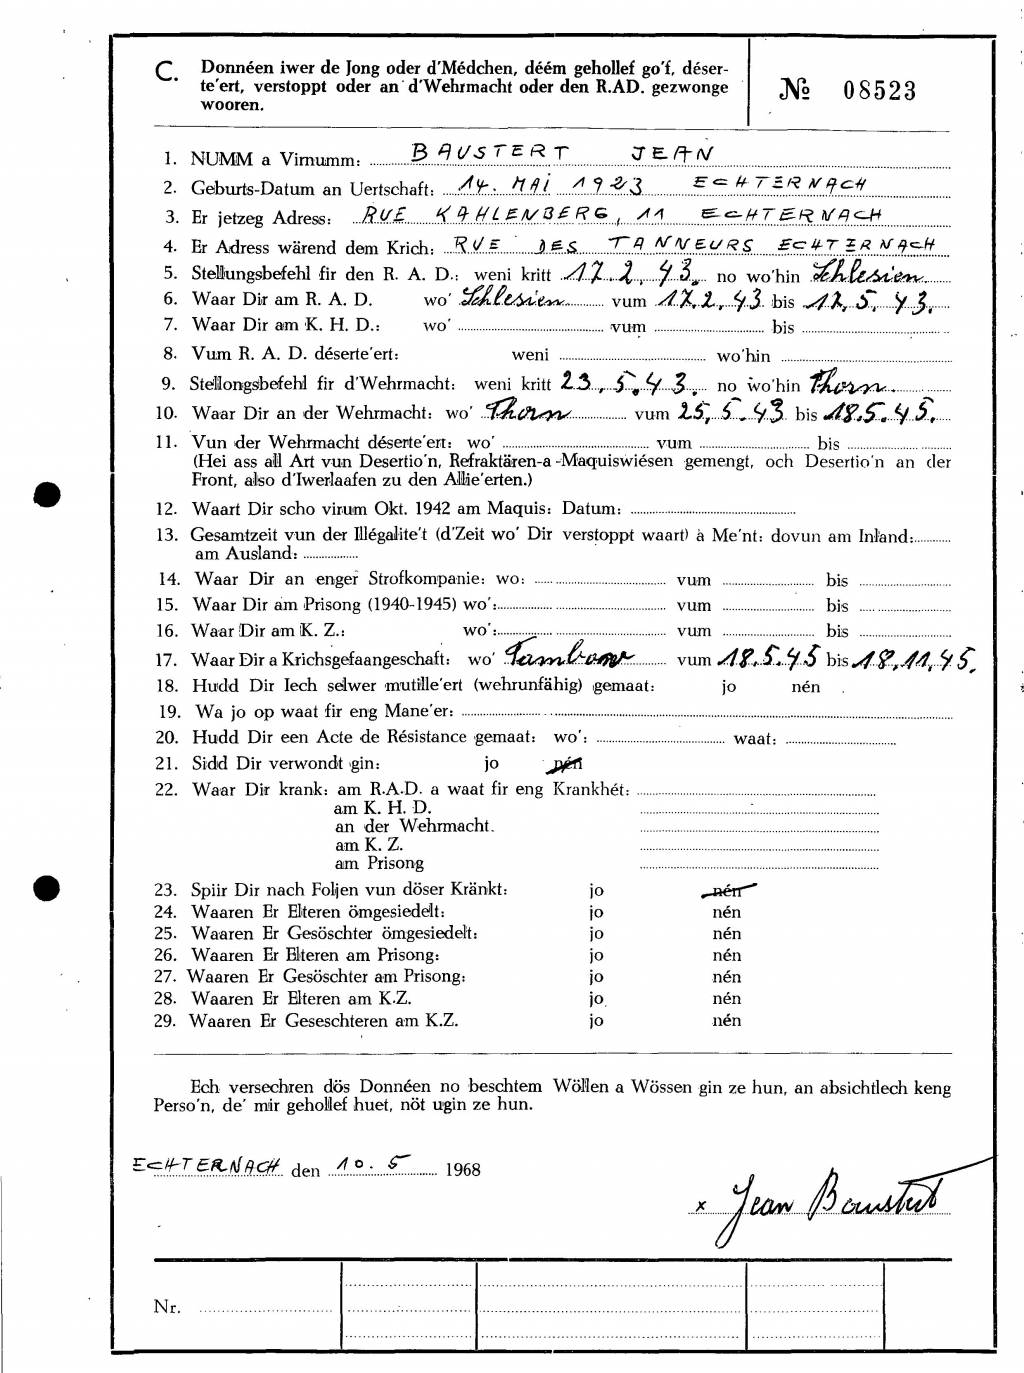 C. Donnéen iwer de Jong oder d'Médchen, déém gehollef go'f, déser-
te'ert, verstoppt oder an d'Wehrmacht oder den R.AD. gezwonge
wooren.
№ 08523
1. NUMM a Virnumm: BAUSTERT JEAN
2. Geburts-Datum an Uertschaft: 14. MAI 1923 ECHTERNACH
3. Er jetzeg Adress: RUE KAHLENBERG, 11 ECHTERNACH
4. Er Adress wärend dem Krich: RUE DES TANNEURS ECHTERNACH
5. Stellungsbefehl fir den R. A. D.: weni kritt 17.2.43. no wo'hin Schlesien
6. Waar Dir am R. A. D. wo' Schlesien vum 17.2.43 bis 17.5.43.
7. Waar Dir am K. H. D.: wo' vum bis
8. Vum R. A. D. déserte'ert: weni wo'hin
9. Stellongsbefehl fir d'Wehrmacht: weni kritt 23.5.43. no wo'hin Thorn
10. Waar Dir an der Wehrmacht: wo' Thorn vum 25.5.43 bis 18.5.45.
11. Vun der Wehrmacht déserte'ert: wo' vum bis
(Hei ass all Art vun Desertio'n, Refraktären-a-Maquiswiésen gemengt, och Desertio'n an der
Front, also d'Iwerlaafen zu den Allie'erten.)
12. Waart Dir scho virum Okt. 1942 am Maquis: Datum:
13. Gesamtzeit vun der Illégalite't (d'Zeit wo' Dir verstoppt waart) à Me'nt: dovun am Inland:
am Ausland:
14. Waar Dir an enger Strofkompanie: wo: vum bis
15. Waar Dir am Prisong (1940-1945) wo': vum bis
16. Waar Dir am K. Z.: wo': vum bis
17. Waar Dir a Krichsgefaangeschaft: wo' Tambow vum 18.5.45 bis 18.11.45.
18. Hudd Dir Iech selwer mutille'ert (wehrunfähig) gemaat: jo nén
19. Wa jo op waat fir eng Mane'er:
20. Hudd Dir een Acte de Résistance gemaat: wo': waat:
21. Sidd Dir verwondt gin: jo nén
22. Waar Dir krank: am R.A.D. a waat fir eng Krankhét:
am K. H. D.
an der Wehrmacht.
am K. Z.
am Prisong
23. Spiir Dir nach Foljen vun döser Kränkt: jo nén
24. Waaren Er Elteren ömgesiedelt: jo nén
25. Waaren Er Gesöschter ömgesiedelt: jo nén
26. Waaren Er Elteren am Prisong: jo nén
27. Waaren Er Gesöschter am Prisong: jo nén
28. Waaren Er Elteren am K.Z. jo nén
29. Waaren Er Geseschteren am K.Z. jo nén
Ech versechren dös Donnéen no beschtem Wöllen a Wössen gin ze hun, an absichtlech keng
Perso'n, de' mir gehollef huet, nöt ugin ze hun.
ECHTERNACH den 10. 5 1968
x Jean Baustert
Nr.